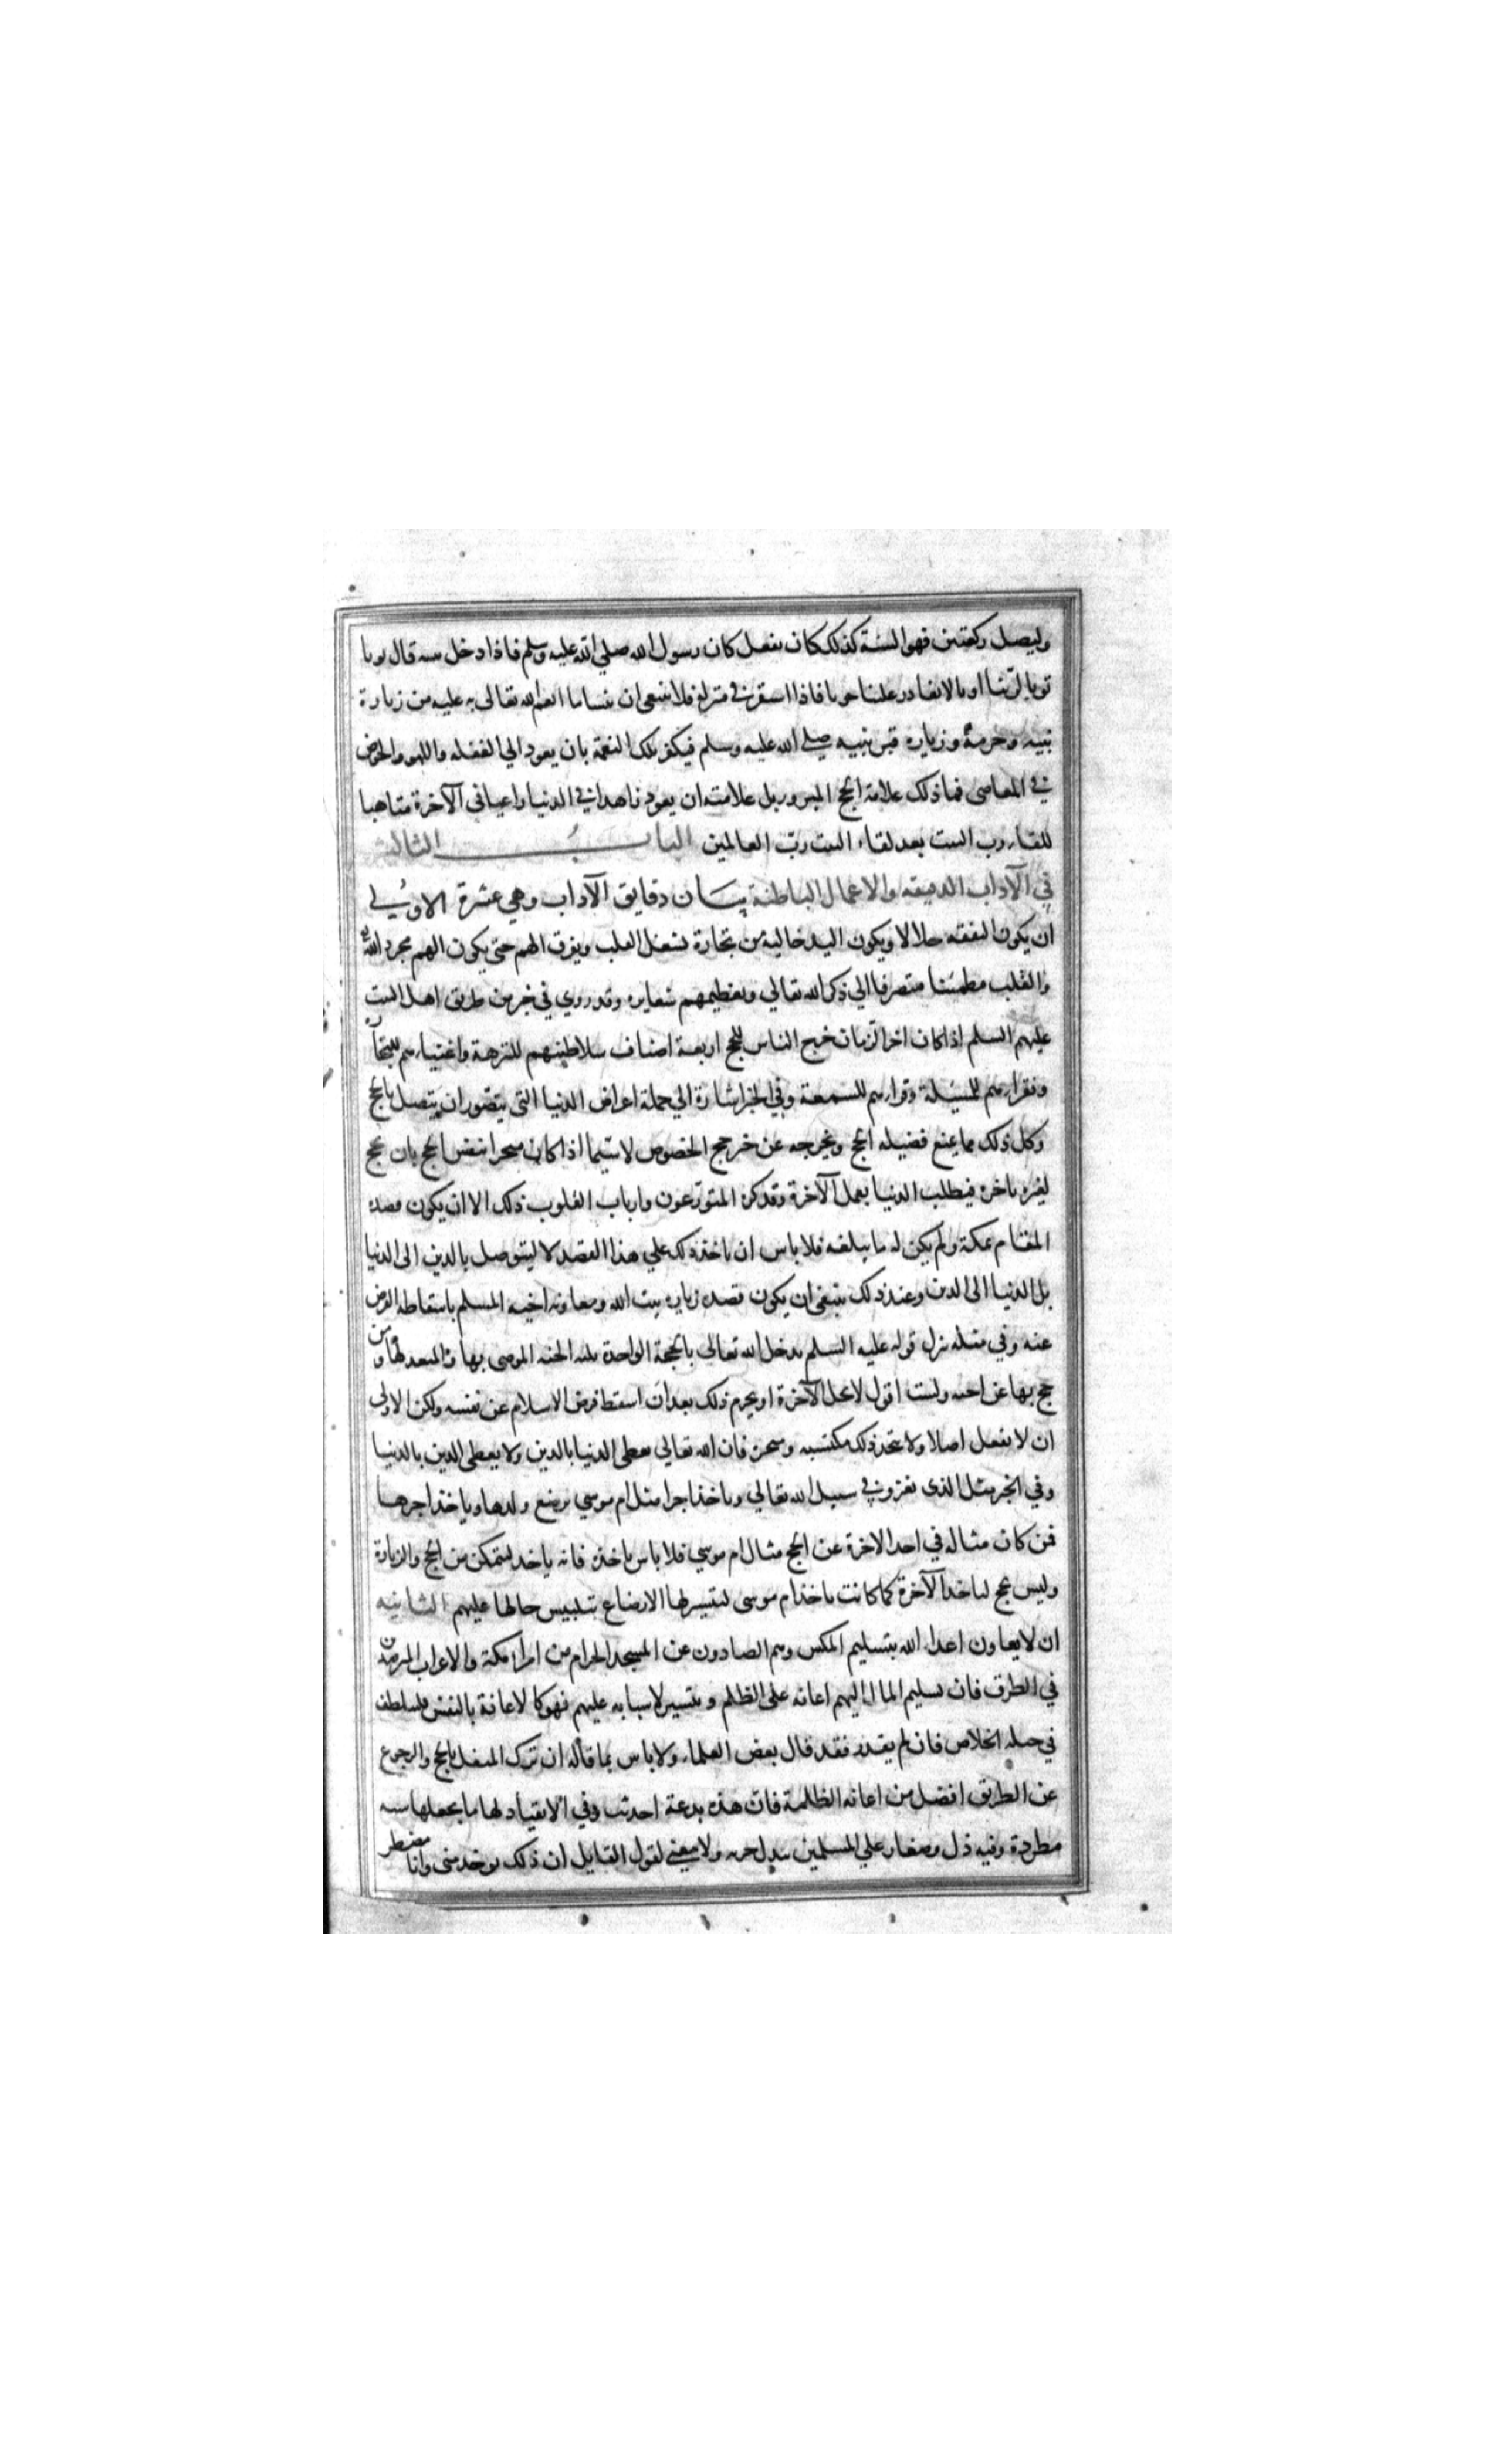 وليصل ركعتين فهو السنة كذلك كان يفعل كان رسول الله صلي الله عليه وسلم فاذا دخل بيته قال توبا
توبا لربنا اوبا لا يغادر علينا حوبا فاذا استقر في منزله فلا ينبغي ان ينسا ما انعم الله تعالى به عليه من زيارة
بيته وحرمه وزياره قبر نبيه صلي الله عليه وسلم فيكفر تلك النعمة بان يعود الي الغفله واللهو والخوض
في المعاصى فما ذلك علامة الحج المبرور بل علامته ان يعود زاهدا في الدنيا راغبا في الآخرة متاهبا
للقاء رب البيت بعد لقاء البيت رب العالمين الباب الثالث
في الآداب الدقيقه والاعمال الباطنة بيان دقايق الآداب وهي عشرة الاولي
ان يكون النفقه حلالا ويكون اليد خالية من تجارة تشغل القلب ويفرق الهم حتى يكون الهم مجرد الله
والقلب مطمئنا متصرفا الي ذكر الله تعالي وتعظيمهم شعايره وقد روي في خبر من طريق اهل البيت
عليهم السلم اذا كان اخر الزمان خرج الناس للحج اربعة اصناف سلاطينهم للنزهة واغنيارهم للتجارة
وفقرارهم للمسيلة وقرارهم للسمعة وفي الخبر اشارة الي جملة اعراض الدنيا التى يتصور ان يتصل بالحج
وكل ذلك مما يمنع فضيله الحج ويخرجه عن خرج الخصوص لاسيما اذا كان متجرا بنفس الحج بان يحج
لغيره باخره فيطلب الدنيا بعمل الآخرة وقد كره المتورعون وارباب القلوب ذلك الا ان يكون قصده
المقام بمكة ولم يكن له ما يبلغه فلا باس ان ياخذ ذلك علي هذا القصد لا ليتوصل بالدين الى الدنيا
بل الدنيا الى الدين وعند ذلك ينبغي ان يكون قصده زياره بيت الله ومعاونه اخيه المسلم باسقاط الفرض
عنه وفي مثله نزل قوله عليه السلم يدخل الله تعالى بالحجة الواحدة ثلثه الجنه الموصى بها والمنفد لها ومن
حج بها عن اخيه ولست اقول لا يحل الآخرة او يحرم ذلك بعد ان اسقط فرض الاسلام عن نفسه ولكن الاولى
ان لا يفعل اصلا ولا يتخذ ذلك مكتسبه ومتجره فان الله تعالي يعطي الدنيا بالدين ولا يعطي الدين بالدنيا
وفي الخبر مثل الذى يغزو في سبيل الله تعالي وياخذ اجرا مثل ام موسي ترضع ولدها وياخذ اجرها
فمن كان مثاله في اخذ الاخرة عن الحج مثال ام موسي فلا باس باخذه فانه ياخذ ليتمكن من الحج والزيارة
وليس يحج لياخذ الآخرة كما كانت ياخذ ام موسى ليتيسر لها الارضاع بتلبيس حالها عليهم الثانيه
ان لا يعاون اعداء الله بتسليم المكس وهم الصادون عن المسجد الحرام من امراء مكة والاعراب المترصدين
في الطرق فان تسليم المال اليهم اعانه على الظلم وتيسير لاسبابه عليهم فهو كالاعانة بالنفس فليتلطف
في حيله الخلاص فان لم يقدر فقد قال بعض العلماء ولا باس بما قاله ان ترك المتنفل بالحج والرجوع
عن الطريق افضل من اعانه الظلمة فان هذه بدعة احدثت وفي الانقياد لها ما يجعلها سنه
مطردة وفيه ذل وصغار علي المسلمين ببذل جزيه ولا معني لقول القايل ان ذلك يوخذ منى وانا مضطر